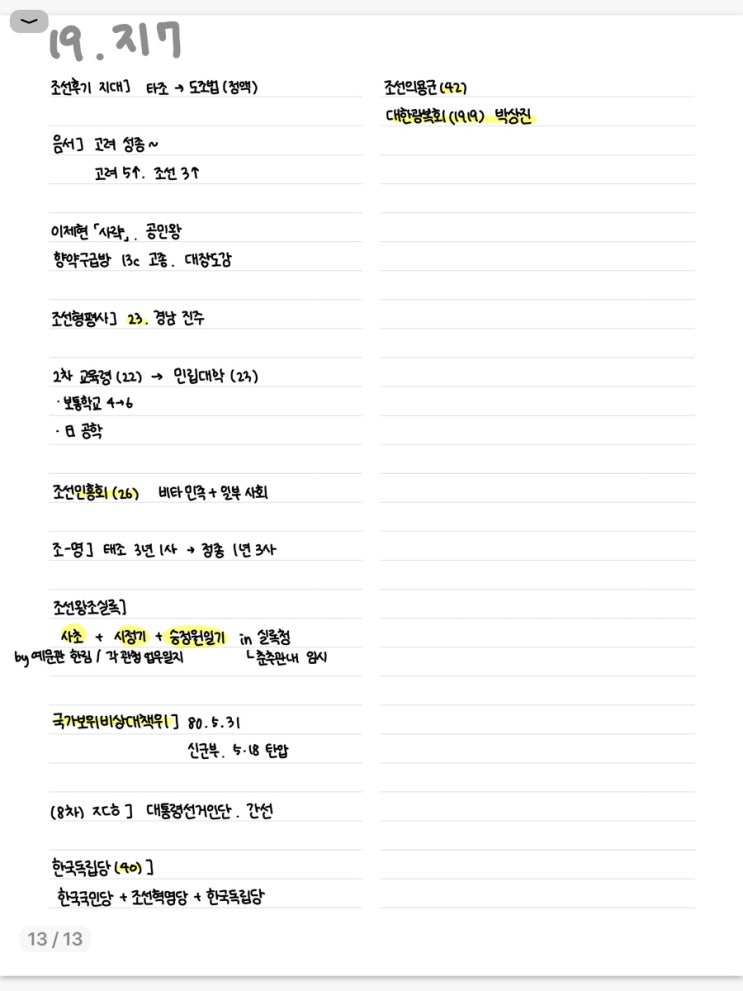 19. 지7
조선후기 지대] 타조 → 도조법 (정액)
음서] 고려 성종~
고려 5↑. 조선 3↑
이제현 「사략」. 공민왕
향약구급방 13c 고종. 대장도감
조선형평사] 23. 경남 진주
2차 교육령 (22) → 민립대학 (23)
· 보통학교 4→6
· 日 공학
조선민흥회 (26) 비타 민족 + 일부 사회
조-명] 태조 3년 1사 → 정종 1년 3사
조선왕조실록]
사초 + 시정기 + 승정원일기 in 실록청
by 예문관 한림 / 각 관청 업무일지 └ 춘추관내 임시
국가보위비상대책위] 80.5.31
신군부. 5·18 탄압
(8차) ㅈㄷㅎ] 대통령선거인단. 간선
한국독립당 (40)]
한국국민당 + 조선혁명당 + 한국독립당
조선의용군 (42)
대한광복회 (1919) 박상진
13 / 13